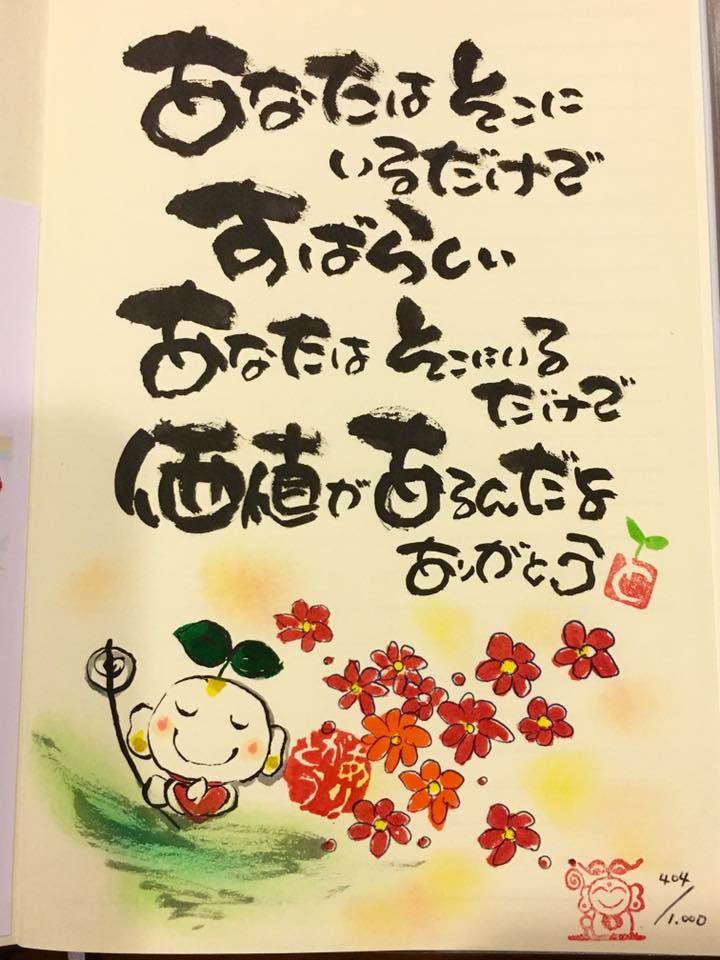 あなたは そこに
いるだけで
すばらしい
あなたは そこにいる
だけで
価値が あるんだよ
ありがとう
404/1.000